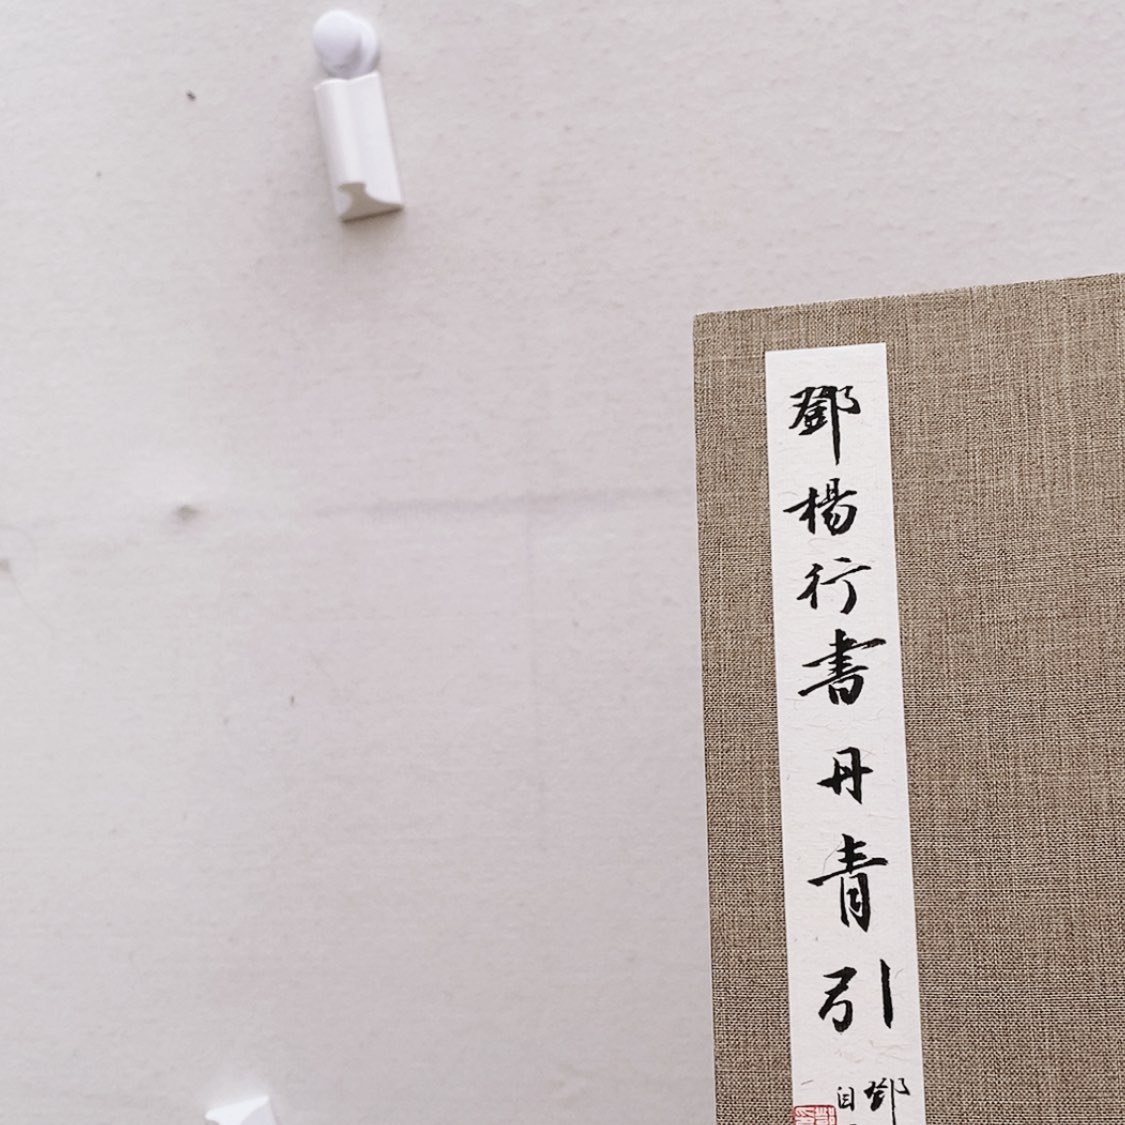 鄧楊行書丹青引
鄧
自